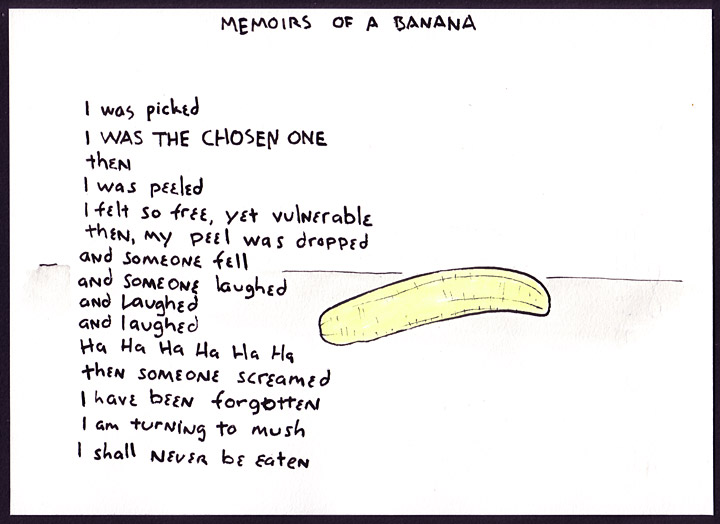 MEMOIRS OF A BANANA
I was picked
I WAS THE CHOSEN ONE
then
I was peeled
I felt so free, yet vulnerable
then, my peel was dropped
and someone fell
and someone laughed
and Laughed
and laughed
Ha Ha Ha Ha Ha Ha
then someone screamed
I have been forgotten
I am turning to mush
I shall never be eaten